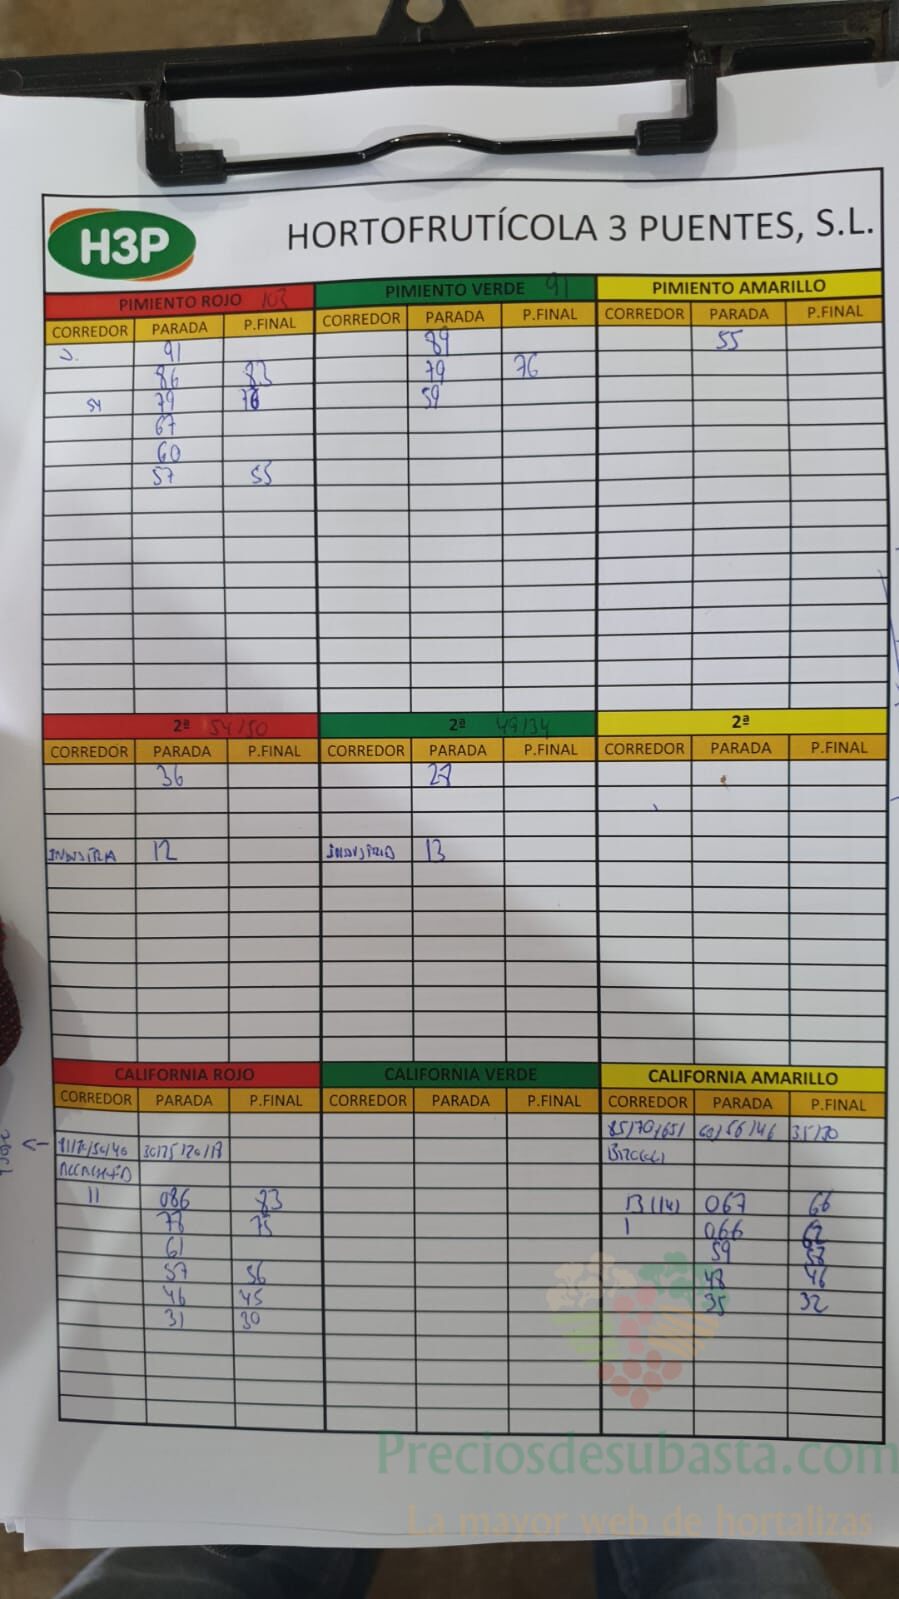 H3P
HORTOFRUTÍCOLA 3 PUENTES, S.L.
PIMIENTO ROJO 103 PIMIENTO VERDE 91 PIMIENTO AMARILLO
CORREDOR PARADA P.FINAL CORREDOR PARADA P.FINAL CORREDOR PARADA P.FINAL
91 89 55
86 83 79 76
54 79 76 59
67
60
57 55
2ª 54/50 2ª 49/34 2ª
CORREDOR PARADA P.FINAL CORREDOR PARADA P.FINAL CORREDOR PARADA P.FINAL
36 27
INDUSTRIA 12 INDUSTRIA 13
CALIFORNIA ROJO CALIFORNIA VERDE CALIFORNIA AMARILLO
CORREDOR PARADA P.FINAL CORREDOR PARADA P.FINAL CORREDOR PARADA P.FINAL
85/70/65/ 60/56/46 35/30
11 086 83 13 (14) 067 66
78 75 1 066 62
61 59 58
57 56 48 46
46 45 35 32
31 30
Preciosdesubasta.com
La mayor web de hortalizas